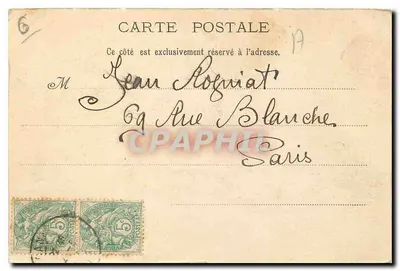 6
CARTE POSTALE
Ce côté est exclusivement réservé à l'adresse.
M Jean Rogniat
69 Rue Blanche
Paris
CPAPHIL
5 5